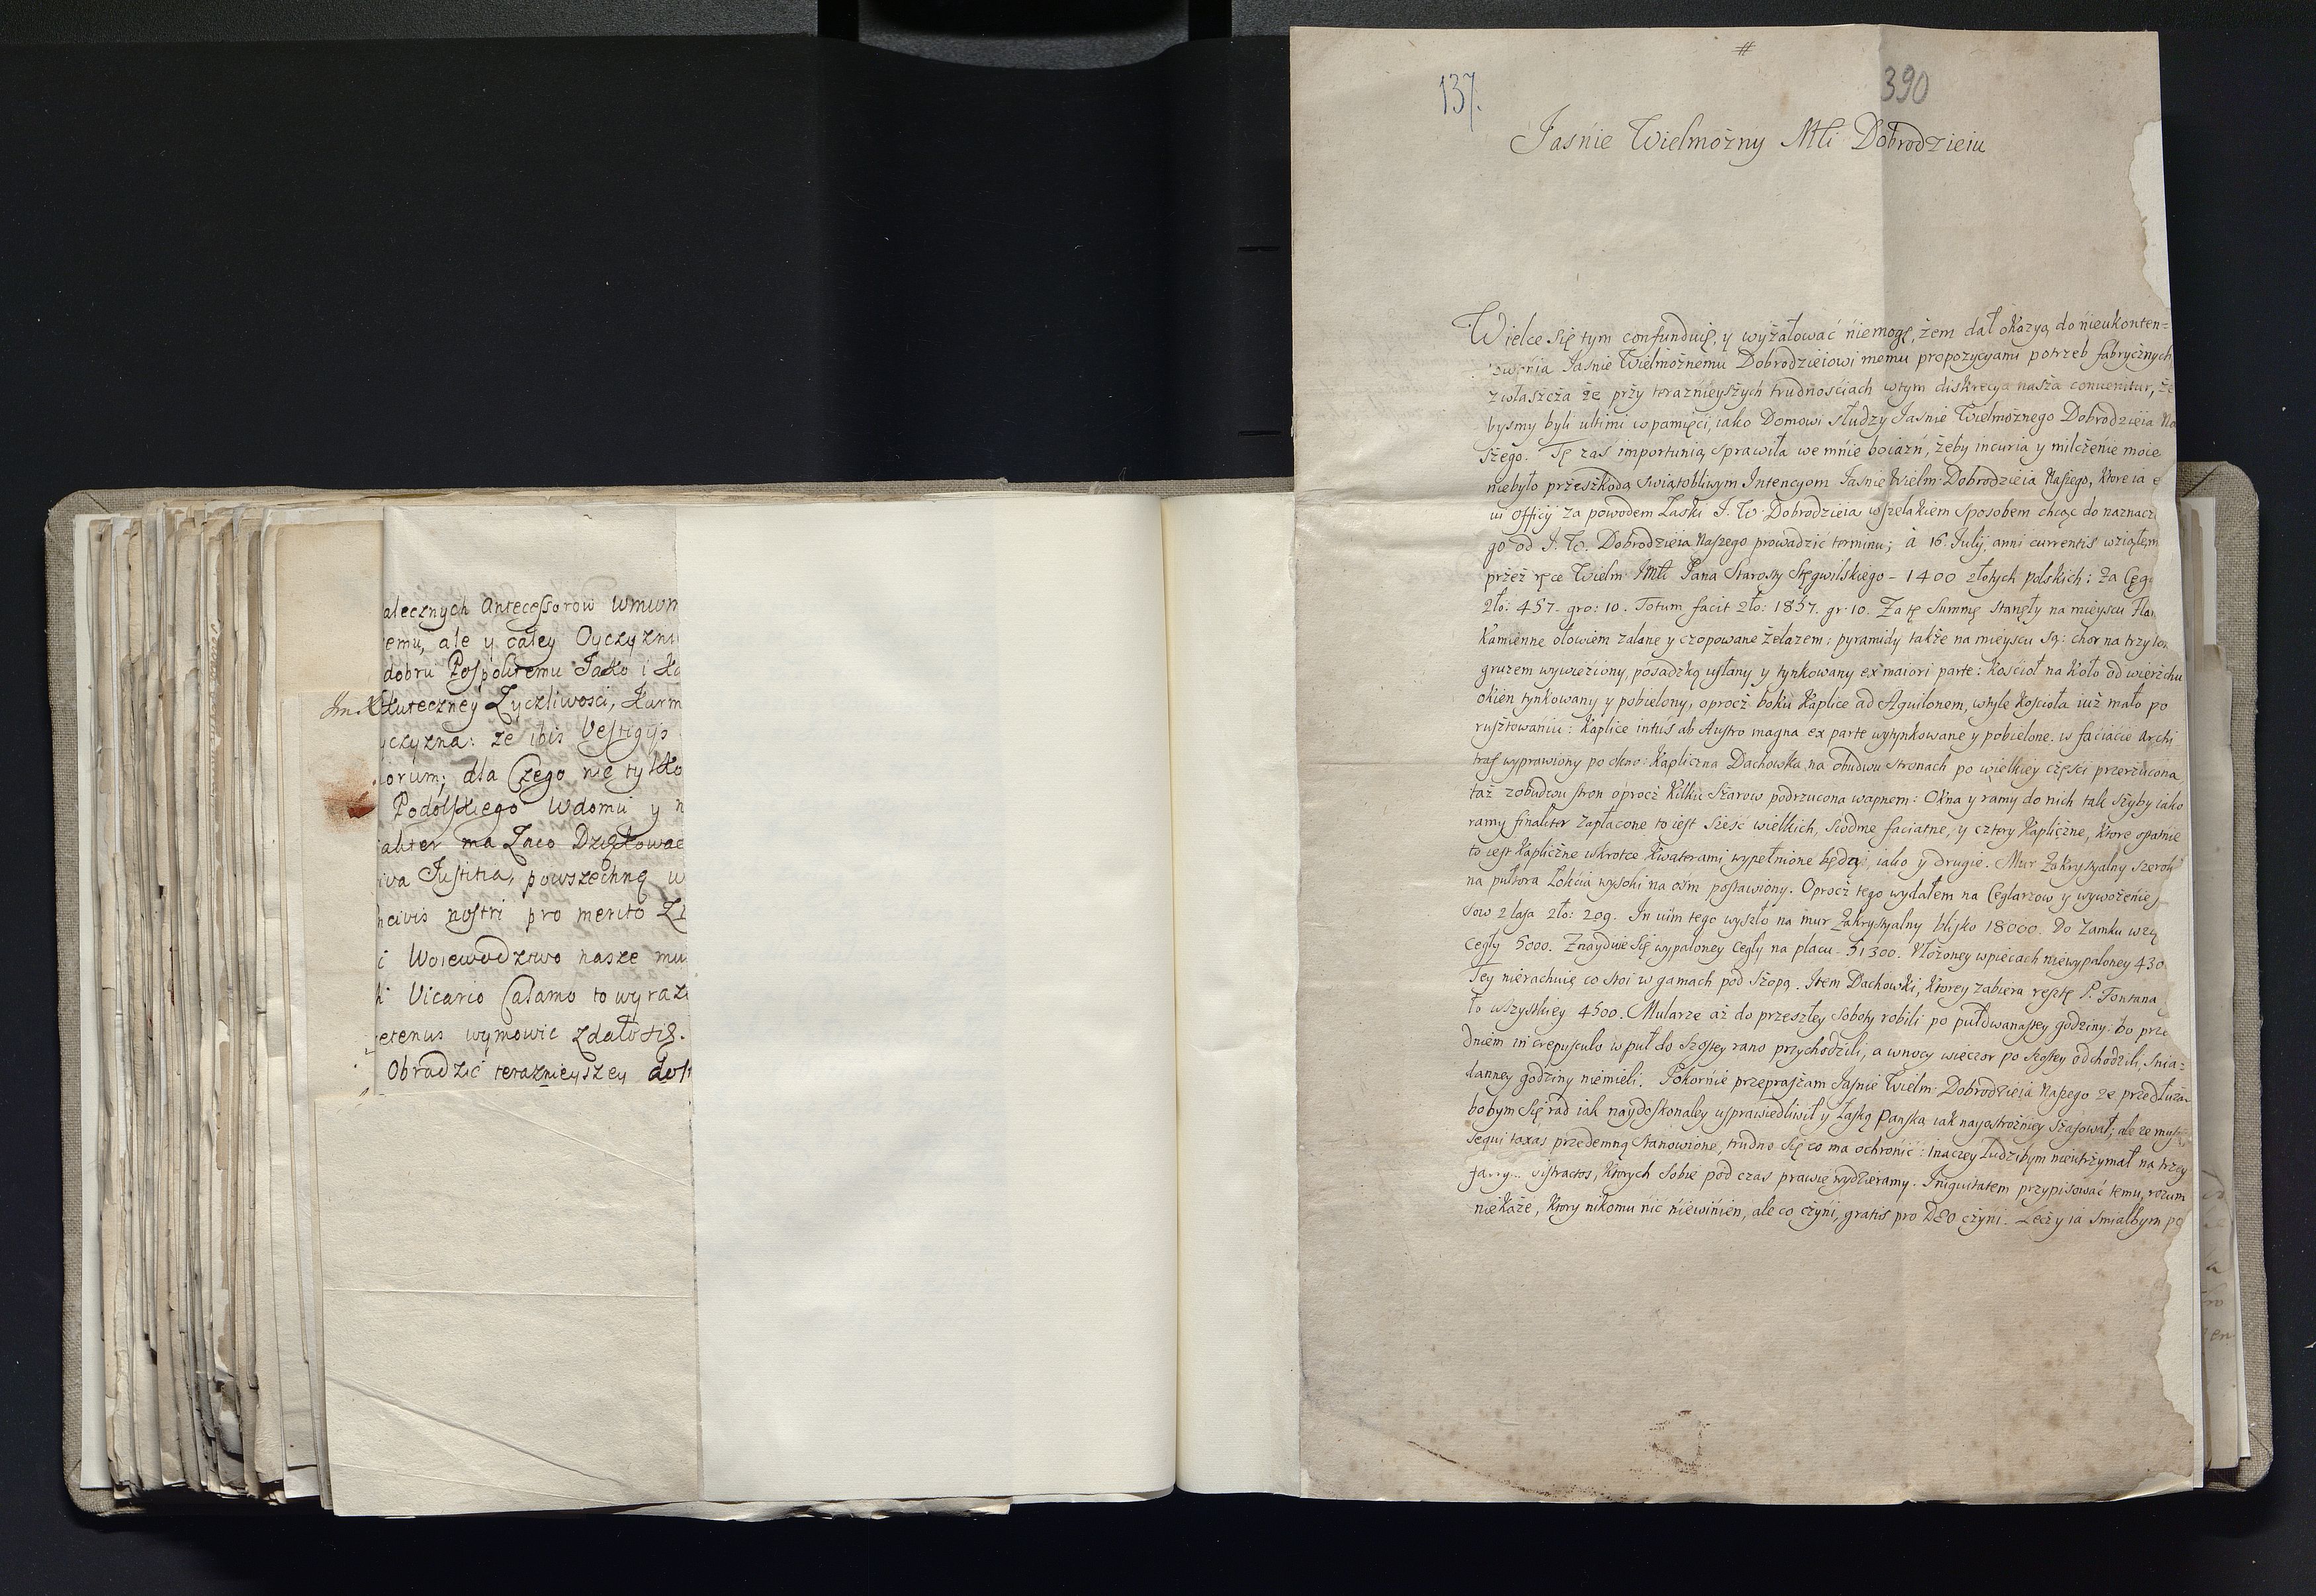 alecznych Antecessorow WMWM
emu, ale y całey Oyczyzni
dobru Pospolitemu Jako i
skuteczney Zyczliwosci, Karm
yczyzna: ze ibis Vestigijs
orum; dla Czego nie tylko
Podolskiego Wdomu y n
aliter ma Zaco Dziękowac
iva Justitia, powszechnę w
ncivis nostri pro merito
i Woiewodztwo nasze mu
Vicario Calamo to wyrazi
etenus wymowic zdało się.
Obradzić teraznieyszey dost
#
137.
390
Jasnie Wielmożny Młi Dobrodzieiu
Wielce się tym confunduię, y wyżałować niemogę, żem dał okazyą do nieukonten=
towania Jasnie Wielmożnemu Dobrodzieiowi memu propozycyami potrzeb fabrycznych
zwłaszcza że przy teraznieyszych trudnościach wtym diskrecya nasza convenitur, że
byśmy byli ultimi wpamięci, iako Domowi słudzy Jasnie Wielmożnego Dobrodzieia Na
szego. Tę zaś importunią sprawiła we mnie boiaźń, żeby incuria y milczenie moie
niebyło przeszkodą swiątobliwym Intencyom Jasnie Wielm. Dobrodzieia Naszego, ktore ia e
ui officij za powodem Łaski J. W. Dobrodzieia wszelakiem sposobem chcąc do naznacz
go od J. W. Dobrodzieia Naszego prowadzić terminu; à 16 Julij anni currentis wziąłem
przez ręce Wielm. JMłi Pana Starosty Stęgwilskiego - 1400 złotych polskich: za Ceg
zło: 457. gro: 10. Totum facit zło: 1857. gr. 10. Za tę Summę stanęły na mieyscu
Kamienne ołowiem zalane y czopowane żelazem: pyramidy także na mieyscu są: chor na trzy
gruzem wywieziony, posadzką usłany y tynkowany ex maiori parte: Kościoł na koło od wierzchu
okien tynkowany y pobielony, oprocz boku Kaplice ad Aquilonem, wtyle Kościoła iuż mało po
rusztowaniu: Kaplice intus ab Austro magna ex parte wytynkowane y pobielone. w faciacie archi
traf wyprawiony po okno: Kapliczna Dachowka na obudwu stronach po wielkiey części przerzucona
taż zobudwu stron oprocz kilku szarow podrzucona wapnem: Okna y ramy do nich tak szyby iako
ramy finaliter zapłacone to iest sześć wielkich, siodme faciatne, y cztery Kapliczne, ktore ostatnie
to iest Kapliczne wkrotce Kwaterami wypełnione będą, iako y drugie. Mur Zakrystyalny szerok
na pułtora łokcia wysoki na ośm postawiony. Oprocz tego wydałem na Ceglarzow y wywożenie
sow z lasa zło: 209. In vim tego wyszło na mur Zakrystyalny blisko 18000. Do Zamku wzię
Cegły 5000. Znayduie się wypaloney Cegły na placu - 51300. Włożoney wpiecach niewypaloney 430
Tey nierachuię co stoi w gamach pod szopą. Item Dachowki, ktorey zabiera resztę P. Fontana
to wszystkiey 4500. Mularze aż do przeszłey soboty robili po pułdwanastey godziny: bo prze
dniem in crepusculo w puł do szostey rano przychodzili, a wnocy wieczor po szostey odchodzili, śnia=
danney godziny niemieli. Pokornie przepraszam Jasnie Wielm. Dobrodzieia Naszego ze przedłuża
bo bym się rad iak naydoskonaley usprawiedliwił y łaską Pańską iak nayostrożniey szafował; ale ze muszę
sequi taxas przedemną stanowione, trudno się co ma ochronić: inaczey ludzibym nieutrzymał na trzy
distractos, ktorych sobie pod czas prawie wydzieramy. Iniquitatem przypisować temu, rozum
niekaże, ktory nikomu nic niewinien, ale co czyni, gratis pro DEO czyni. Lecz y ia smiałbym